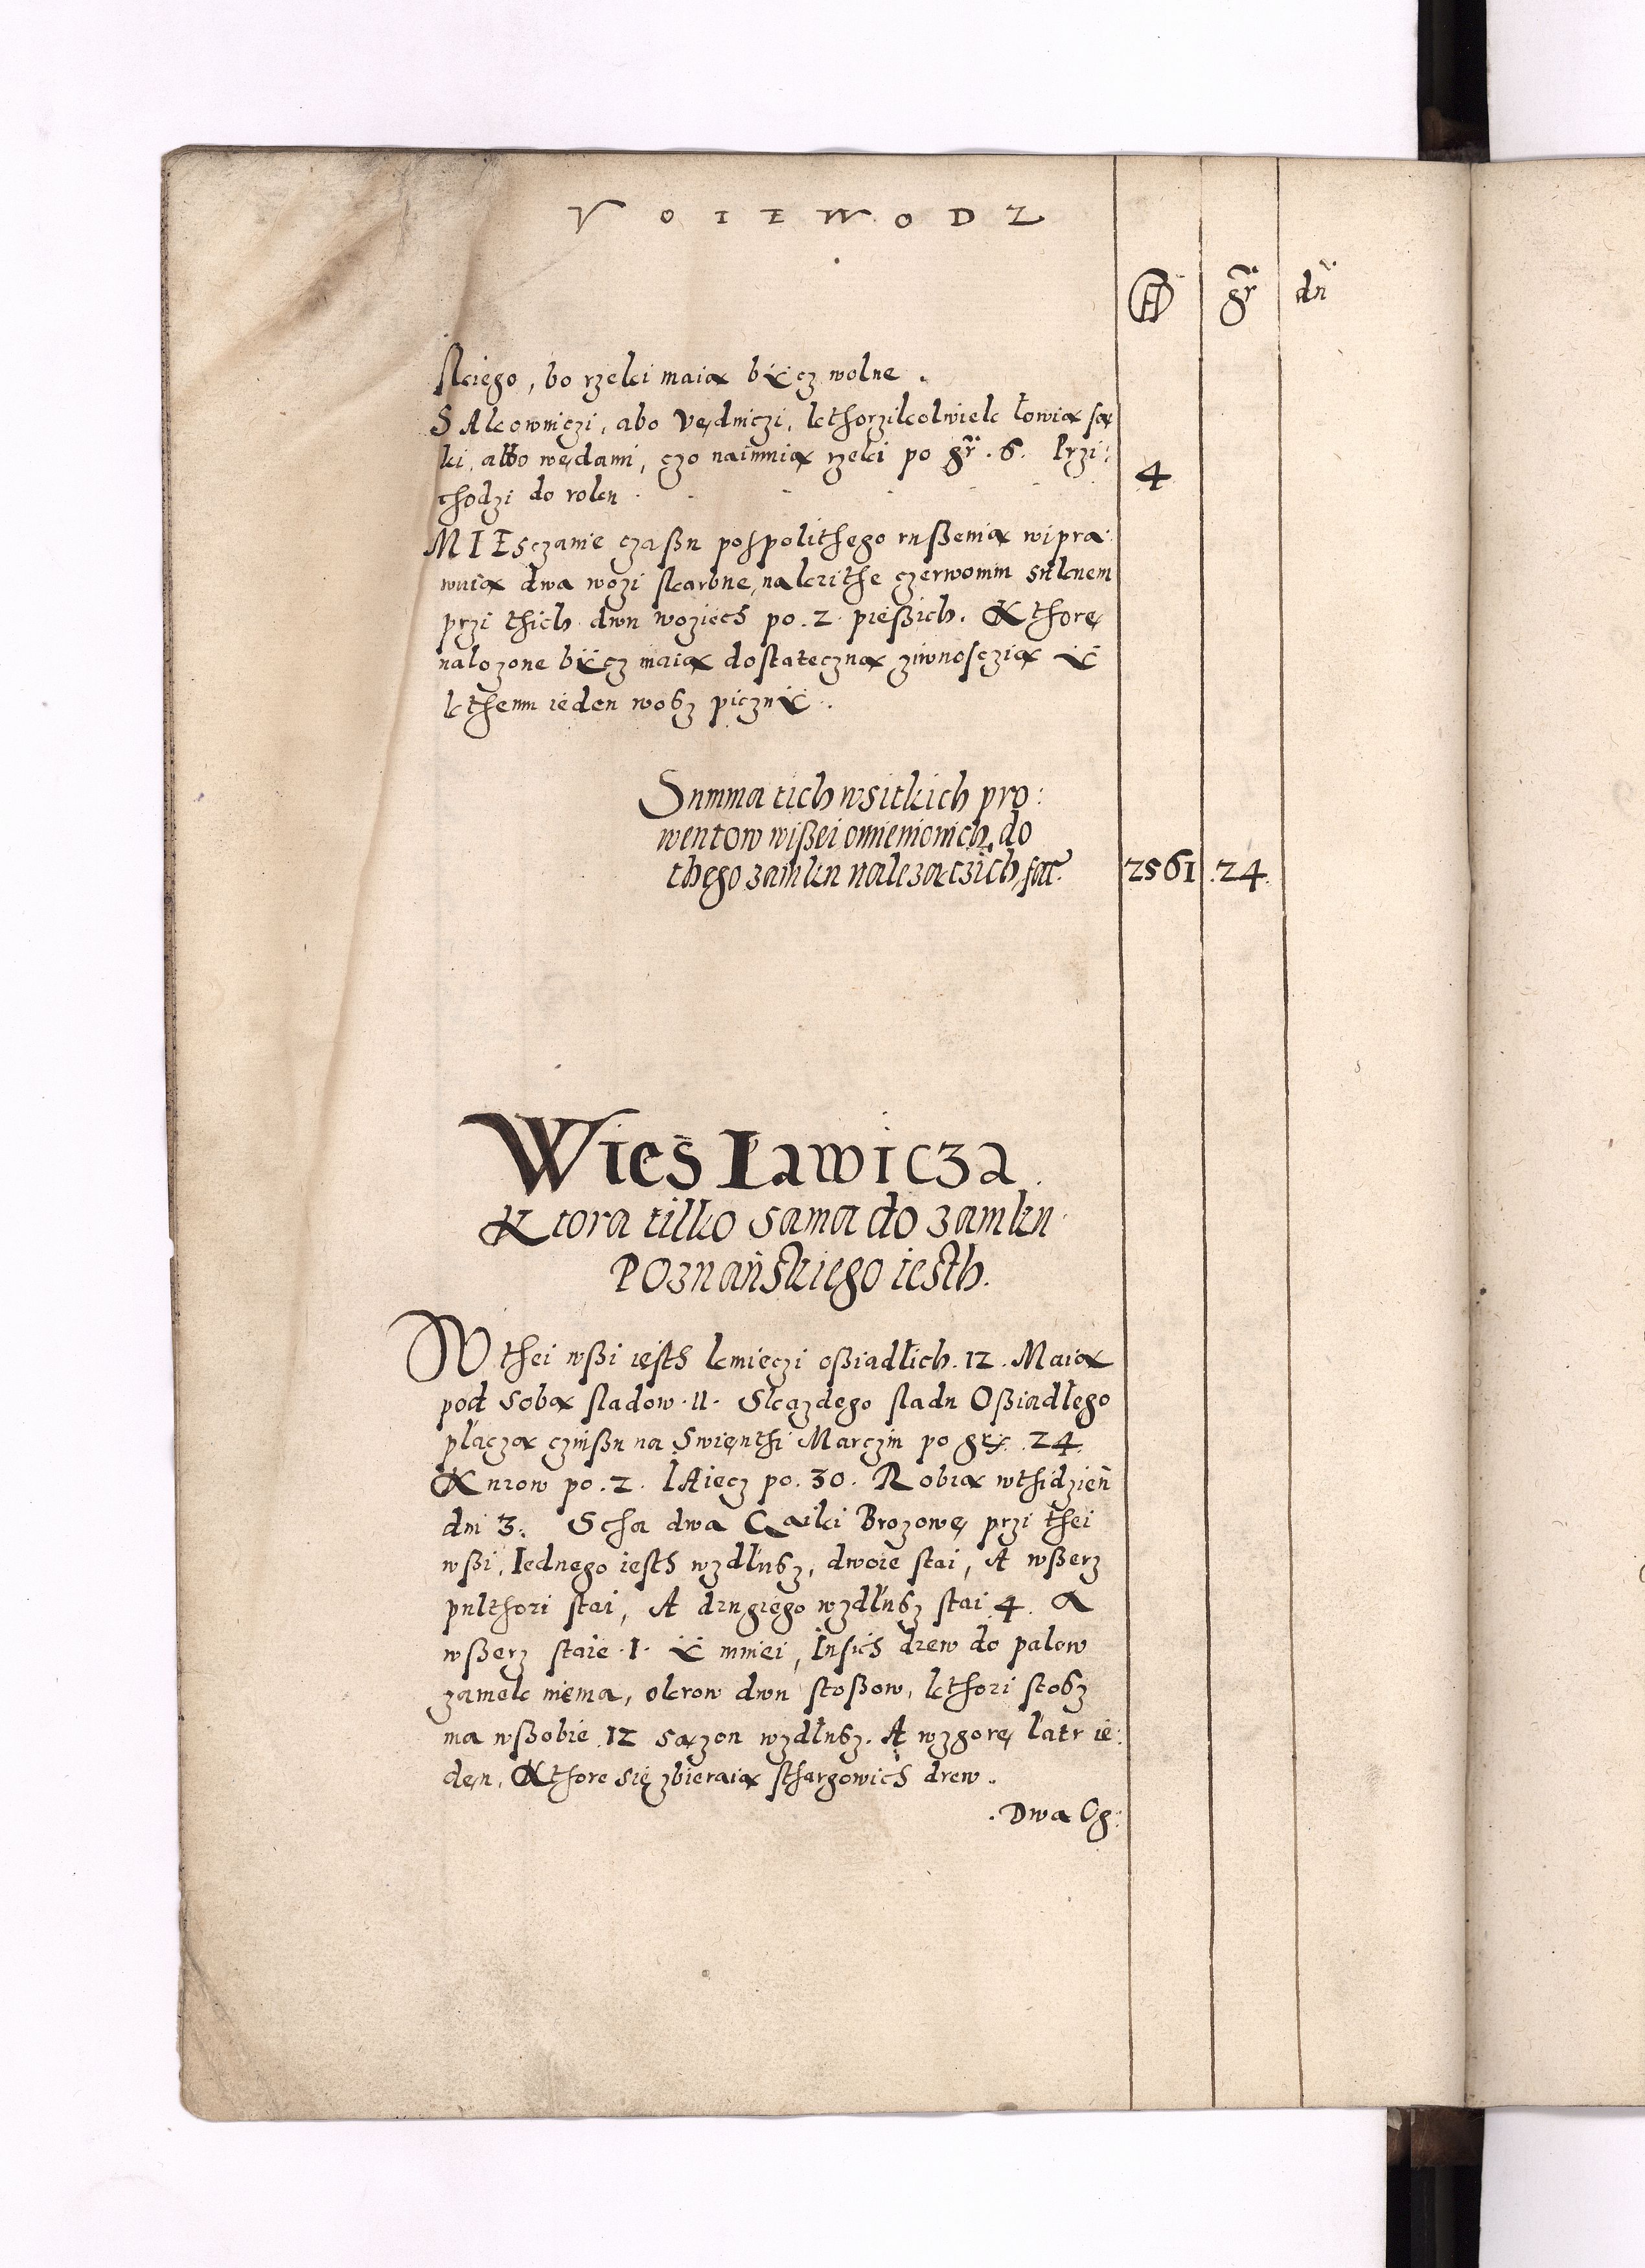 VOIEWODZ
gr dn
skiego, bo rzeki maią bycz wolne.
SAkowniczi, abo Vędniczi, kthorzikolwiek łowią sa
ki, albo wędami, czo naimnią rzeki po gr. 6. Przi:
chodzi do roku . 4
MIEsczanie czaßu pospolithego rußenia wipra
wuią dwa wozi skarbne, nakrithe czerwonim suknem
przi thich dwu woziech po . 2 . pießich. Kthore
nalozone bycz maią dostateczną ziwnosczią y
kthemu ieden wosz piczny.
Summa tich wsitkich pro:
wentow wißei omienionich, do
thego zamku nalezaczich, fac. 2561 . 24.
Wies Ławicza.
Ktora tilko sama do zamku
POznańskiego iesth.
W thei wßi iesth kmieczi oßiadłich . 12 . Maią
pod sobą sladow . 11 . Skazdego sladu Oßiadłego
płaczą czinßu na Swienthi Marczin po gr. 24.
Kurow po . 2 . IAiecz po . 30 . Robią wthidzień
dni 3. Scha dwa Gaiki Brozowe, przi thei
wßi, Iednego iesth wzdłusz, dwoie stai, A wßerz
pulthori stai, A drugiego wzdłusz stai 4. A
wßerz staie . 1 . y mniei, Insich drew do palow
zamek niema, okrow dwu stoßow, kthori stosz
ma wßobie 12 sązon wzdłusz. A wzgorę łatr ie:
den, Kthore się zbieraią sthargowich drew.
. Dwa Og: